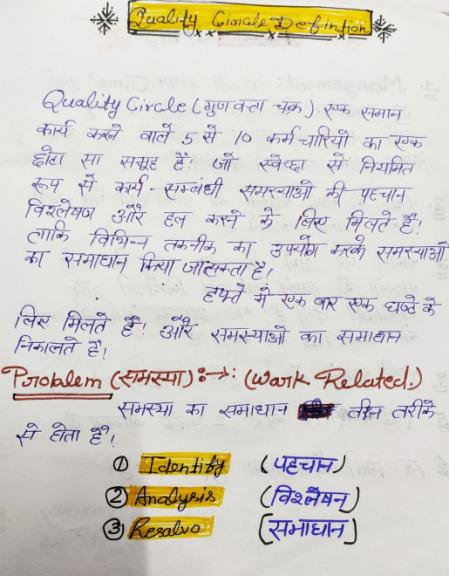 Quality Circle Defintion
Quality Circle (गुणवत्ता चक्र) एक समान
कार्य करने वाले 5 से 10 कर्मचारियों का एक
छोटा सा समूह है! जो स्वेच्छा से नियमित
रूप से कार्य-सम्बंधी समस्याओं की पहचान
विश्लेषण और हल करने के लिए मिलते है!
ताकि विभिन्न तकनीक का उपयोग करके समस्याओं
का समाधान किया जा सकता है!
हफ्ते में एक बार एक घण्टे के
लिए मिलते है! और समस्याओं का समाधान
निकालते है!
Problem (समस्या) :→: (Work Related.)
समस्या का समाधान तीन तरीके
से होता है!
① Identify (पहचान)
② Analysis (विश्लेषन)
③ Resalvo (समाधान)